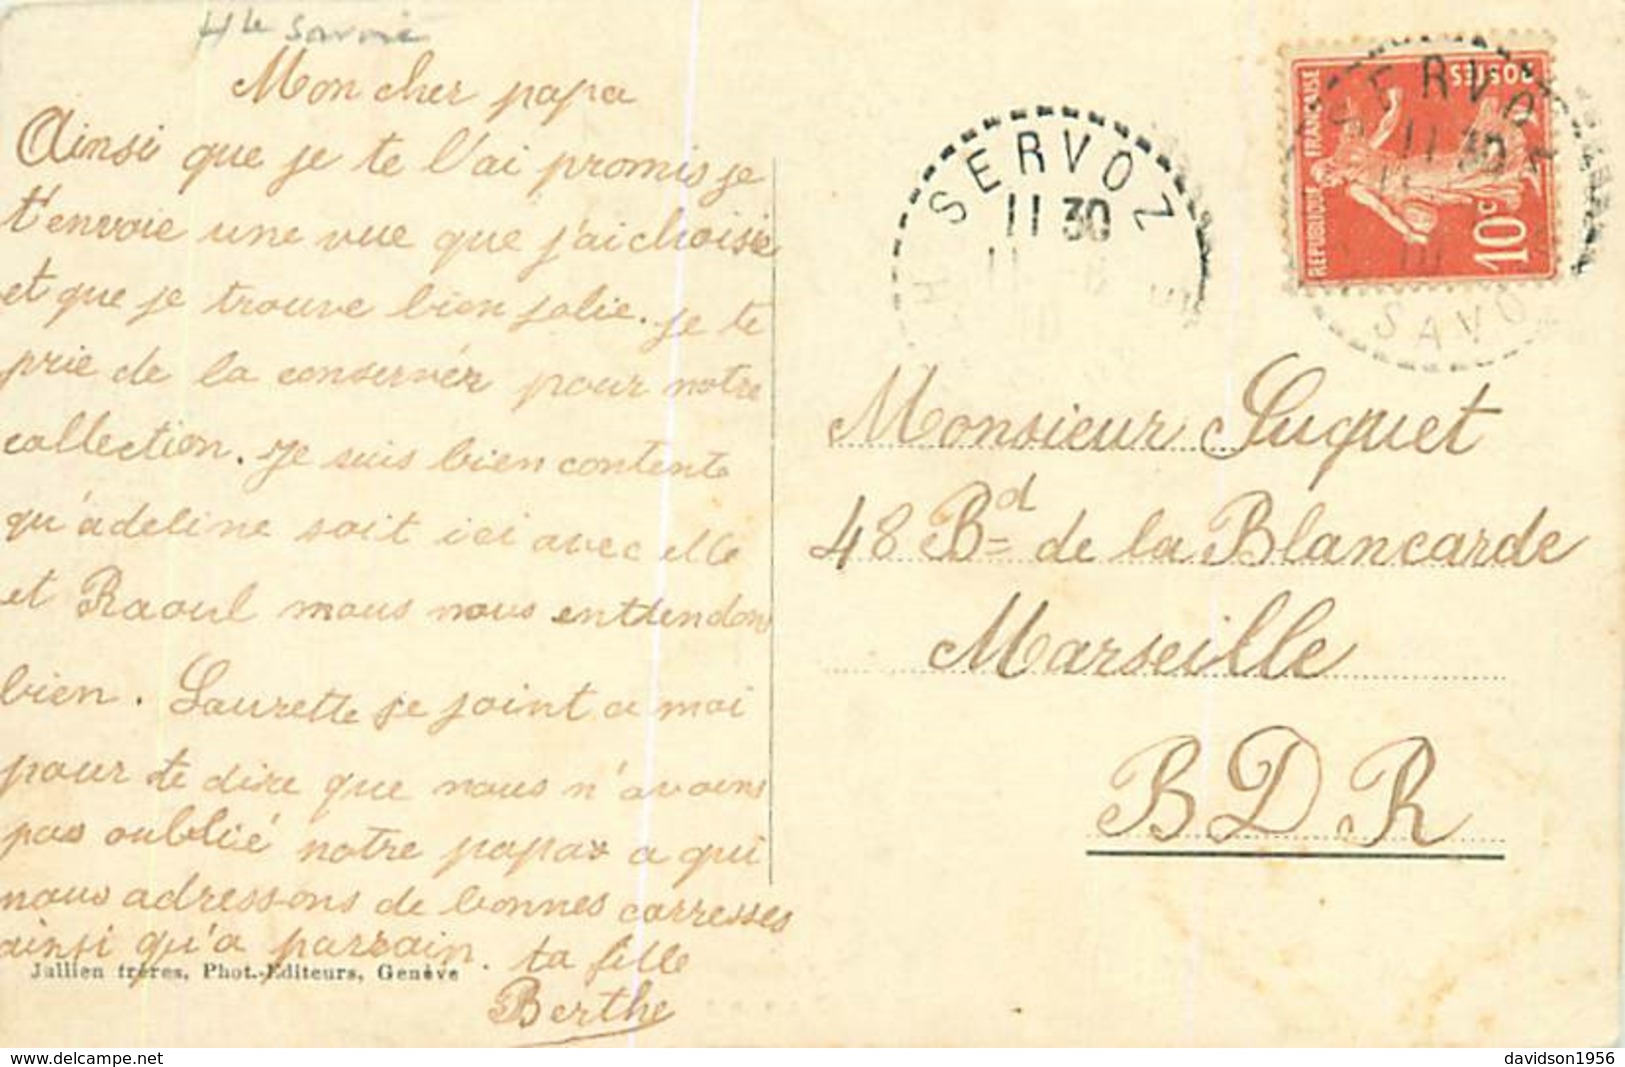 Hte Savoie
Mon cher papa
Ainsi que je te l'ai promis je
t'envoie une vue que j'ai choisie
et que je trouve bien jolie. je te
prie de la conservér pour notre
collection. Je suis bien contente
qu'adeline soit ici avec elle
et Raoul nous nous enttendons
bien. Laurette se joint a moi
pour te dire que nous n'avons
pas oublié notre papa a qui
nous adressons de bonnes carresses
ainsi qu'a parrain. ta fille
Berthe
Jullien frères, Phot.-Editeurs, Genève
SERVOZ
11 30
11
SERVOZ
11 30
SAVO
REPUBLIQUE FRANÇAISE
POSTES
10c
Monsieur Suquet
48 Bd de la Blancarde
Marseille
B D R
www.delcampe.net
davidson1956